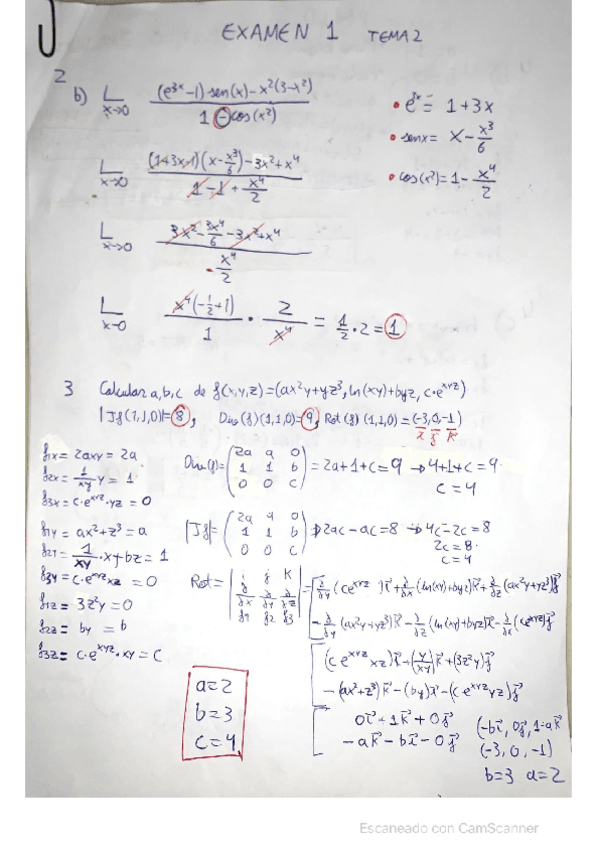 EXAMEN 1 TEMA 2
2
b) L x→0 (e^3x-1)·sen(x)-x²(3-x²) / 1-cos(x²)
• e^3x = 1+3x
• senx = x - x³/6
• cos(x²) = 1 - x⁴/2
L x→0 (1+3x-1)(x-x³/6)-3x²+x⁴ / 1-1+x⁴/2
L x→0 3x²-3x⁴/6-3x²+x⁴ / x⁴/2
L x→0 x⁴(-1/2+1) / 1 · 2/x⁴ = 1/2·2 = 1
3 Calcular a,b,c de f(x,y,z)=(ax²y+yz³, ln(xy)+byz, c·e^xyz)
|Jf(1,1,0)|=8, Div(f)(1,1,0)=9, Rot(f)(1,1,0)=(-3,0,-1)
i j k
f1x = 2axy = 2a
f2x = 1/xy y = 1
f3x = c·e^xyz·yz = 0
f1y = ax²+z³ = a
f2y = 1/xy·x+bz = 1
f3y = c·e^xyz xz = 0
f1z = 3z²y = 0
f2z = by = b
f3z = c·e^xyz·xy = c
Div(f)= (2a a 0 / 1 1 b / 0 0 c) = 2a+1+c=9 → 4+1+c=9
c=4
|Jf|= (2a a 0 / 1 1 b / 0 0 c) → 2ac-ac=8 → 4c-2c=8
2c=8
c=4
Rot = | i j k / ∂/∂x ∂/∂y ∂/∂z / f1 f2 f3 | = [∂/∂y (ce^xyz)i+∂/∂x (ln(xy)+byz)k+∂/∂z (ax²y+yz³)j
-∂/∂y (ax²y+yz³)k-∂/∂z (ln(xy)+byz)i-∂/∂x (ce^xyz)j
[(c e^xyz xz)i+(y/xy)k+(3z²y)j
-(ax²+z³)k-(by)i-(c e^xyz yz)j
[0i+1k+0j
-ak-bi-0j
(-bi, 0j, 1-ak)
(-3, 0, -1)
b=3 a=2
a=2
b=3
c=4
Escaneado con CamScanner